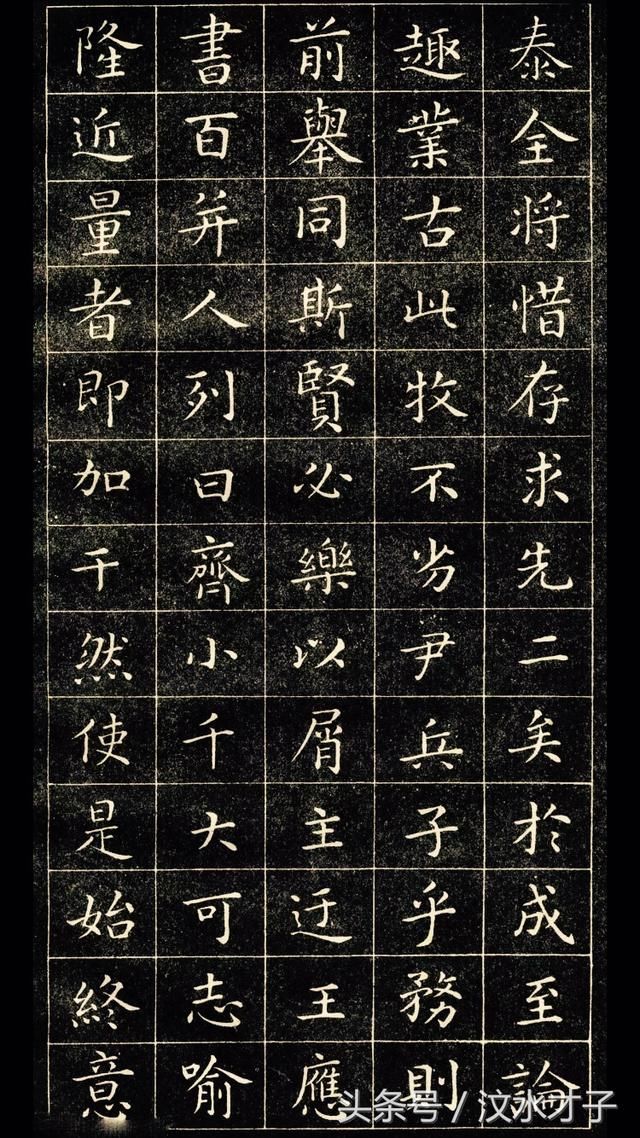 泰全將惜存求先二矣於成至論
趣業古此牧不劣尹兵子乎務則
前舉同斯賢必樂以屑主迂王應
書百并人列曰齊小千大可志喻
隆近量者即加干然使是始終意
头条号 / 汶水才子